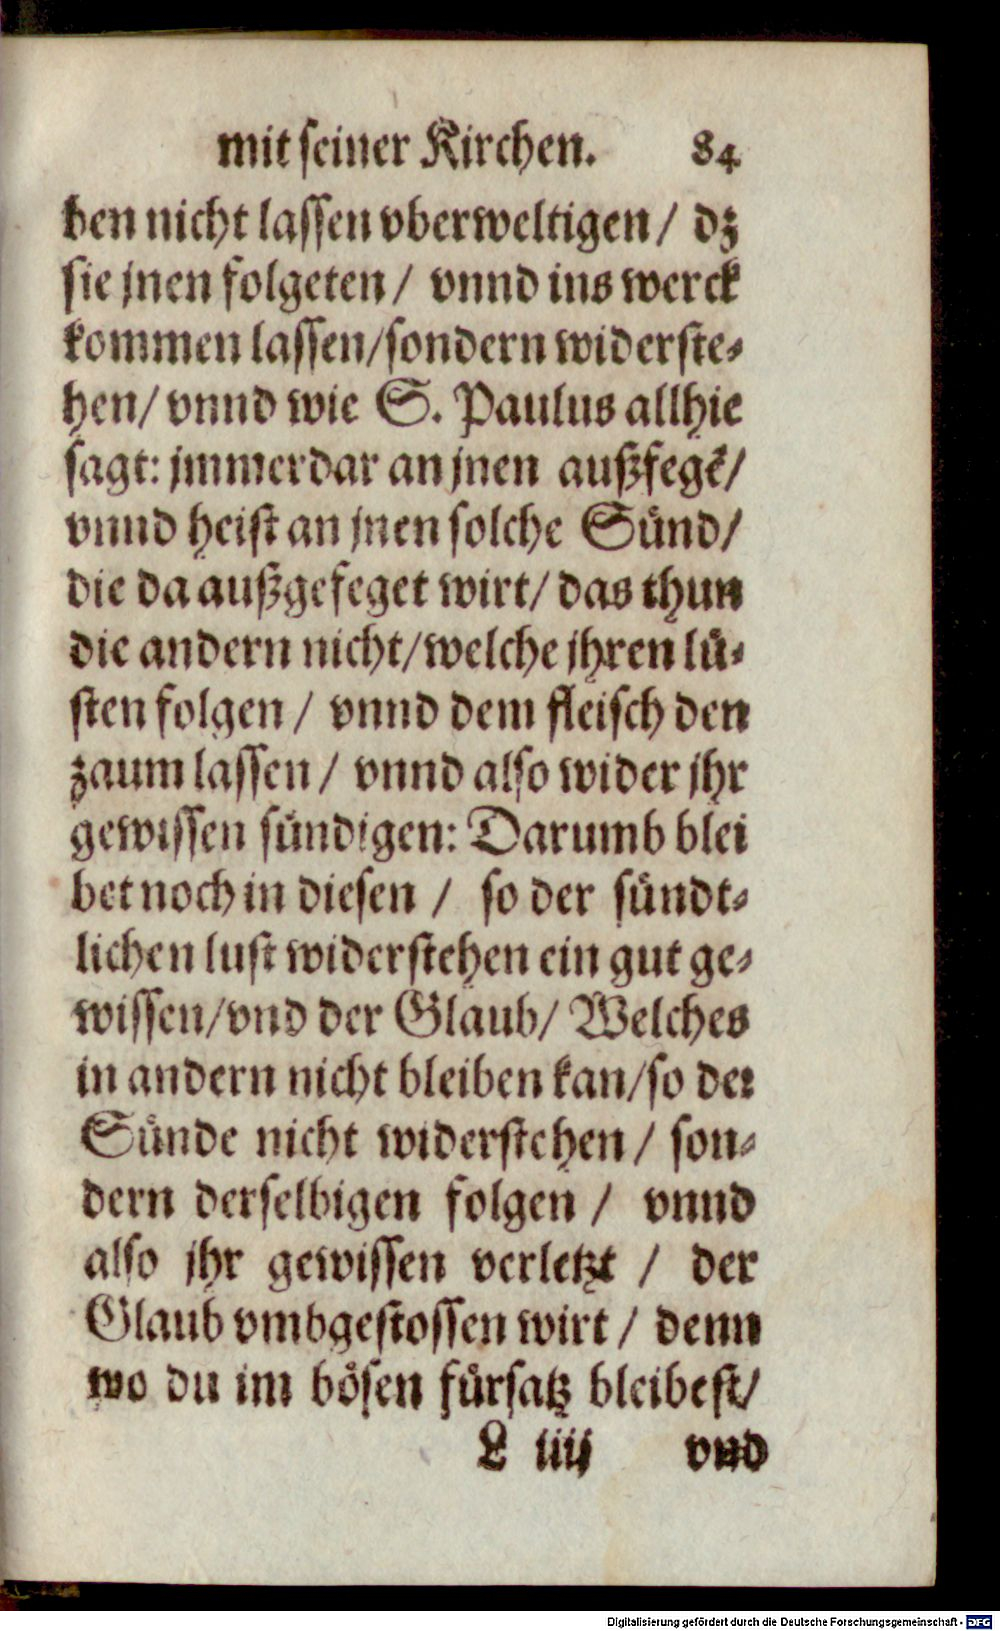 mit seiner Kirchen. 84
ben nicht lassen vberweltigen / dz
sie jnen folgeten / vnnd ins werck
kommen lassen/sondern widerste-
hen/ vnnd wie S. Paulus allhie
sagt: jmmerdar an jnen außfegē/
vnnd heist an jnen solche Sünd/
die da außgefeget wirt/ das thun
die andern nicht/welche jhren lü-
sten folgen / vnnd dem fleisch den
zaum lassen / vnnd also wider jhr
gewissen sündigen: Darumb blei
bet noch in diesen / so der sündt-
lichen lust widerstehen ein gut ge-
wissen/vnd der Glaub/ Welches
in andern nicht bleiben kan/so der
Sünde nicht widerstehen / son-
dern derselbigen folgen / vnnd
also jhr gewissen verletzt / der
Glaub vmbgestossen wirt / denn
wo du im bösen fürsatz bleibest/
L iiij vnd
Digitalisierung gefördert durch die Deutsche Forschungsgemeinschaft - DFG